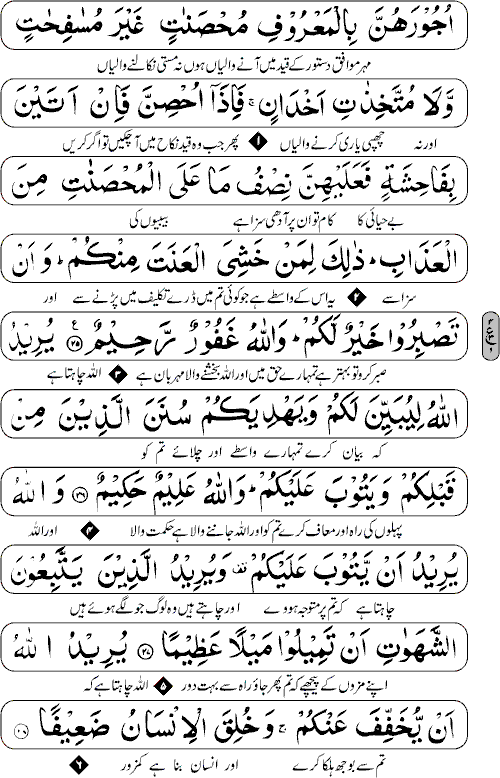 اُجُوْرَهُنَّ بِالْمَعْرُوْفِ مُحْصَنٰتٍ غَيْرَ مُسٰفِحٰتٍ
مہر موافق دستور کے قید میں آنے والیاں ہوں نہ مستی نکالنے والیاں
وَّلَا مُتَّخِذٰتِ اَخْدَانٍ ۚ فَاِذَآ اُحْصِنَّ فَاِنْ اَتَيْنَ
اور نہ چھپی یاری کرنے والیاں ۱ پھر جب وہ قید نکاح میں آ چکیں تو اگر کریں
بِفَاحِشَةٍ فَعَلَيْهِنَّ نِصْفُ مَا عَلَى الْمُحْصَنٰتِ مِنَ
بے حیائی کا کام تو ان پر آدھی سزا ہے بیبیوں کی
الْعَذَابِ ؕ ذٰلِكَ لِمَنْ خَشِىَ الْعَنَتَ مِنْكُمْ ؕ وَاَنْ
سزا سے ۲ یہ اس کے واسطے ہے جو کوئی تم میں ڈرے تکلیف میں پڑنے سے اور
تَصْبِرُوْا خَيْرٌ لَّكُمْ ؕ وَاللّٰهُ غَفُوْرٌ رَّحِيْمٌ ۲۵ يُرِيْدُ
صبر کرو تو بہتر ہے تمہارے حق میں اور اللہ بخشنے والا مہربان ہے ۳ اللہ چاہتا ہے
اللّٰهُ لِيُبَيِّنَ لَكُمْ وَيَهْدِيَكُمْ سُنَنَ الَّذِيْنَ مِنْ
کہ بیان کرے تمہارے واسطے اور چلائے تم کو
قَبْلِكُمْ وَيَتُوْبَ عَلَيْكُمْ ؕ وَاللّٰهُ عَلِيْمٌ حَكِيْمٌ ۲۶ وَاللّٰهُ
پہلوں کی راہ اور معاف کرے تم کو اور اللہ جاننے والا ہے حکمت والا ۴ اور اللہ
يُرِيْدُ اَنْ يَّتُوْبَ عَلَيْكُمْ وَيُرِيْدُ الَّذِيْنَ يَتَّبِعُوْنَ
چاہتا ہے کہ تم پر متوجہ ہووے اور چاہتے ہیں وہ لوگ جو لگے ہوئے ہیں
الشَّهَوٰتِ اَنْ تَمِيْلُوْا مَيْلًا عَظِيْمًا ۲۷ يُرِيْدُ اللّٰهُ
اپنے مزوں کے پیچھے کہ تم پھر جاؤ راہ سے بہت دور ۵ اللہ چاہتا ہے کہ
اَنْ يُّخَفِّفَ عَنْكُمْ ۚ وَخُلِقَ الْاِنْسَانُ ضَعِيْفًا ۲۸
تم سے بوجھ ہلکا کرے اور انسان بنا ہے کمزور ۶